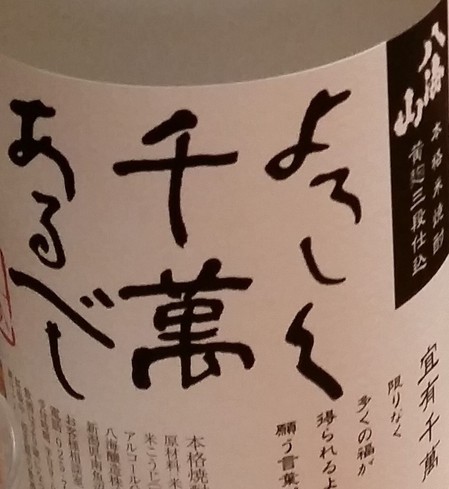 八海山
本格米焼酎
黄麹三段仕込
よろしく
千萬
あるべし
宜有千萬
限りなく
多くの福が
得られるよ
願う言葉
本格焼酎
原材料 米
米こうじ
アルコール分
八海醸造株
新潟県南魚沼
お客様相談室
電話 025-7